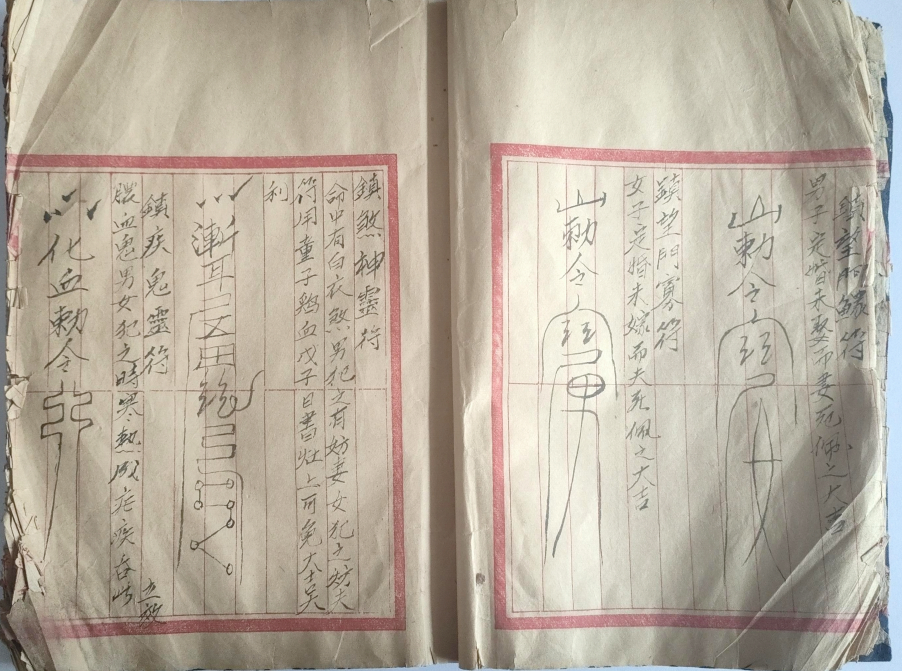 鎮望門鰥符
男子定婚未娶而妻死佩之大吉
勅令
鎮望門寡符
女子定婚未嫁而夫死佩之大吉
勅令
鎮煞神靈符
命中有白衣煞男犯之有妨妻女犯之妨夫
符用童子鷄血戊子日書灶上可免大吉
利
鎮疾鬼靈符
膿血鬼男女犯之時寒熱成疟疾吞此
之效
化血勅令